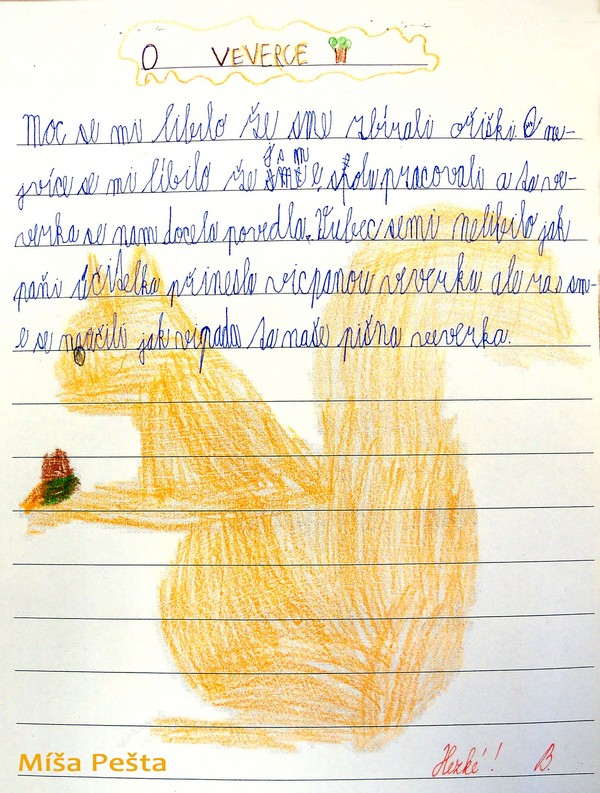 O VEVERCE
Moc se mi líbilo že sme zbírali oříški. O ne-
jvíce se mi líbilo že jsme spolu pracovali a ta ve-
verka se nam docela povedla. Vubec semi nelíbilo jak
paňi učitelka přinesla vicpanou veverku. ale zas sm-
e se naučili jak vipada ta naše pišna veverka.
Míša Pešta
Hezké! B.